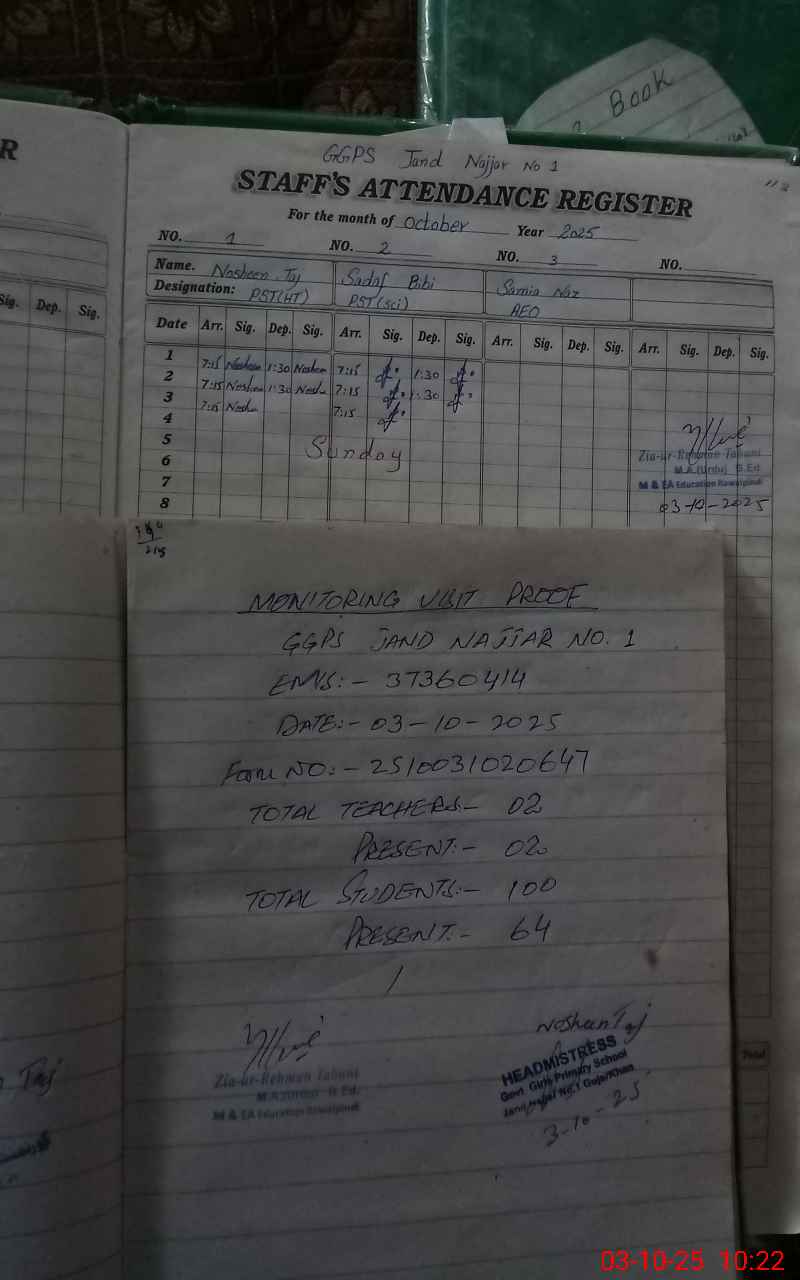 R
Book
GGPS Jand Najjar No 1
STAFF'S ATTENDANCE REGISTER
For the month of October Year 2025
NO. 1 NO. 2 NO. 3 NO.
Name. Nosheen Taj Sadaf Bibi Samia Naz
Designation: PST(HT) PST(sci) AEO
Sig. Dep. Sig.
Date Arr. Sig. Dep. Sig. Arr. Sig. Dep. Sig. Arr. Sig. Dep. Sig. Arr. Sig. Dep. Sig.
1 7:15 Nosheen 1:30 Nosheen 7:15 1:30
2 7:15 Nosheen 1:30 Nosh 7:15 1:30
3 7:15 Nosh 7:15
4
5 Sunday
6
7
8
Zia-ur-Rehman Tabani
M.A(Urdu) B.Ed.
M & EA Education Rawalpindi
03-10-2025
MONITORING VISIT PROOF
GGPS JAND NAJJAR NO. 1
EMIS:- 37360414
DATE:- 03-10-2025
Form NO:- 2510031020647
TOTAL TEACHERS:- 02
PRESENT:- 02
TOTAL STUDENTS:- 100
PRESENT:- 64
Zia-ur-Rehman Tabani
M.A(Urdu) B.Ed.
M & EA Education Rawalpindi
Nosheen Taj
HEADMISTRESS
Govt. Girls Primary School
Jand Najjar No.1 Gujar Khan
3-10-25
Taj
Total
03-10-25 10:22